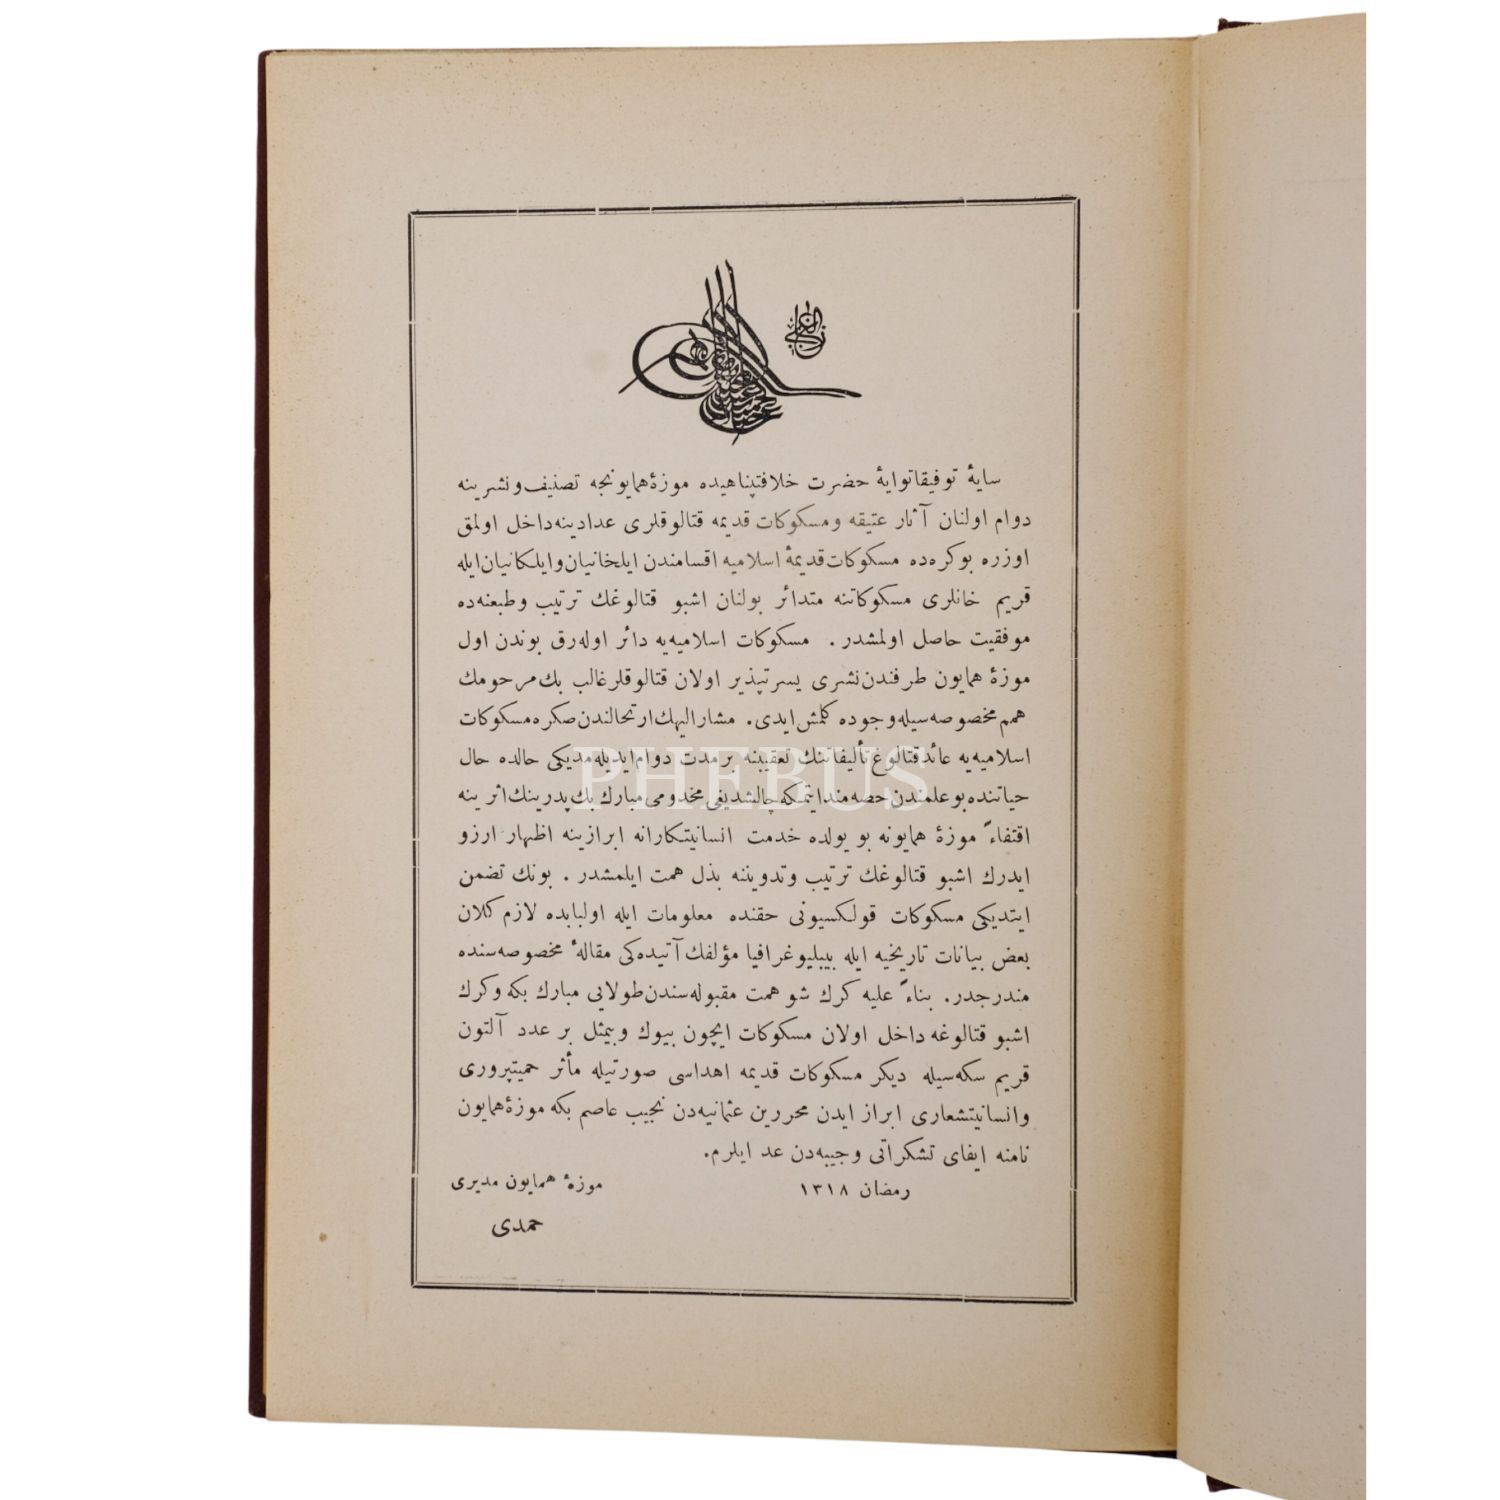 سایهٔ توفیقاتوایهٔ حضرت خلافتپناهیده موزهٔ همایونجه تصنیف و نشرینه
دوام اولنان آثار عتیقه و مسکوکات قدیمه قتالوقلری عدادینه داخل اولمق
اوزره بو کره ده مسکوکات قدیمهٔ اسلامیه اقسامندن ایلخانیان و ایلکانیان ایله
قریم خانلری مسکوکاتنه متدائر بولنان اشبو قتالوغك ترتیب و طبعنه ده
موفقیت حاصل اولمشدر . مسکوکات اسلامیه یه دائر اوله رق بوندن اول
موزهٔ همایون طرفندن نشری یسرتپذیر اولان قتالوقلر غالب بك مرحومك
همم مخصوصه سیله وجوده کلمش ایدی . مشار الیهك ارتحالندن صکره مسکوکات
اسلامیه یه عائد قتالوغ تألیفاتنك تعقیبنه بر مدت دوام ایدیله مدیکی حالده حال
حیاتنده بو علمندن حصه مند ایتمکه چالشدیغی مخدومی مبارك بك پدرینك اثرینه
اقتفاءً موزهٔ همایونه بو یولده خدمت انسانیتکارانه ابرازینه اظهار ارزو
ایدرك اشبو قتالوغك ترتیب و تدویننه بذل همت ایلمشدر . بونك تضمن
ایتدیکی مسکوکات قولکسیونی حقنده معلومات ایله اولبابده لازم کلان
بعض بیانات تاریخیه ایله بیبلیوغرافیا مؤلفك آتیده کی مقالهٔ مخصوصه سنده
مندرجدر . بناءً علیه کرك شو همت مقبوله سندن طولایی مبارك بکه و کرك
اشبو قتالوغه داخل اولان مسکوکات ایچون بیوك و بیمثل بر عدد آلتون
قریم سکه سیله دیکر مسکوکات قدیمه اهداسی صورتیله مأثر حمیتپروری
و انسانیتشعاری ابراز ایدن محررین عثمانیه دن نجیب عاصم بکه موزهٔ همایون
نامنه ایفای تشکراتی وجیبه دن عد ایلرم .
رمضان ۱۳۱۸ موزهٔ همایون مدیری
حمدی
PHEBUS